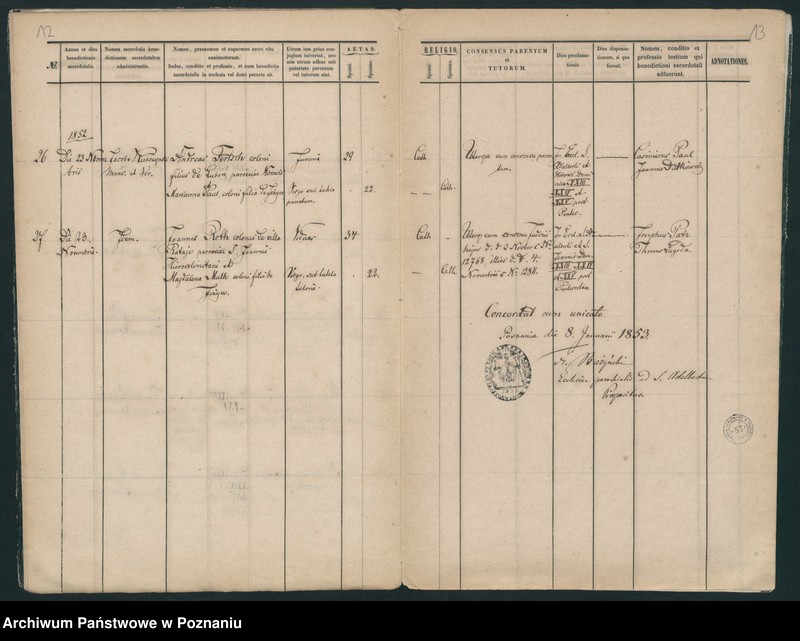 12
13
№
Annus et dies
benedictionis
sacerdotalis.
Nomen sacerdotis bene-
dictionem sacerdotalem
administrantis.
Nomen, praenomen et cognomen sacro ritu
conjunctorum.
Sedes, conditio et professio, et num benedictio
sacerdotalis in ecclesia vel domi peracta sit.
Utrum jam prius con-
jugium iniverint, nec
non utrum adhuc sub
potestate parentum
vel tutorum sint.
AETAS.
Sponsi.
Sponsae.
RELIGIO.
Sponsi.
Sponsae.
CONSENSUS PARENTUM
et
TUTORUM.
Dies proclama-
tionis.
Dies dispensa-
tionum, si qua
fuerat.
Nomen, conditio et
professio testium qui
benedictioni sacerdotali
adfuerunt.
ADNOTATIONES.
1852
26
Die 23 Novem
bris
Jacob
Andreas coloni
filius de
Marianna Paul, coloni filia
Juvenis
Virgo sub tutela
parentum
29
22.
Cath.
Cath.
Utrique cum consensu paren
tum.
In Eccl. S.
Adalberti et
XXIII
XXIV et
XXV post
Pentec.
Casimirus Paul
Joannes
37
Die 23.
Novembris
Idem.
Joannes Roth colonus de villa
Rataje parochiae S. Joannis
Hierosolimitani et
Magdalena Muth coloni filia de
Viduus
Virgo. sub tutela
tutoris.
34
22.
Cath.
Cath.
Utrique cum consensu
hujus d. d. 3 Novbr c №
12768, illius d. d. 4.
Novembris c № 12811.
In Eccl. S.
Adalberti et S.
Joannis Dom.
XXIII XXIV
et XXV post
Pentecostem
Josephus Patz
Thomas Lagoda
Concordat cum unicato.
Posnania die 8. Januarii 1853.
Bażyński
Ecclesiae parochialis ad S. Adalbertum
Praepositus.
93
Archiwum Państwowe w Poznaniu